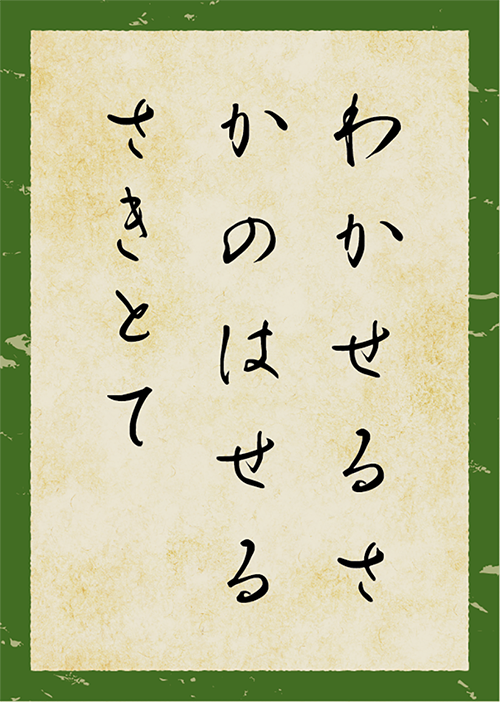 わかせるさ
かのはせる
さきとて